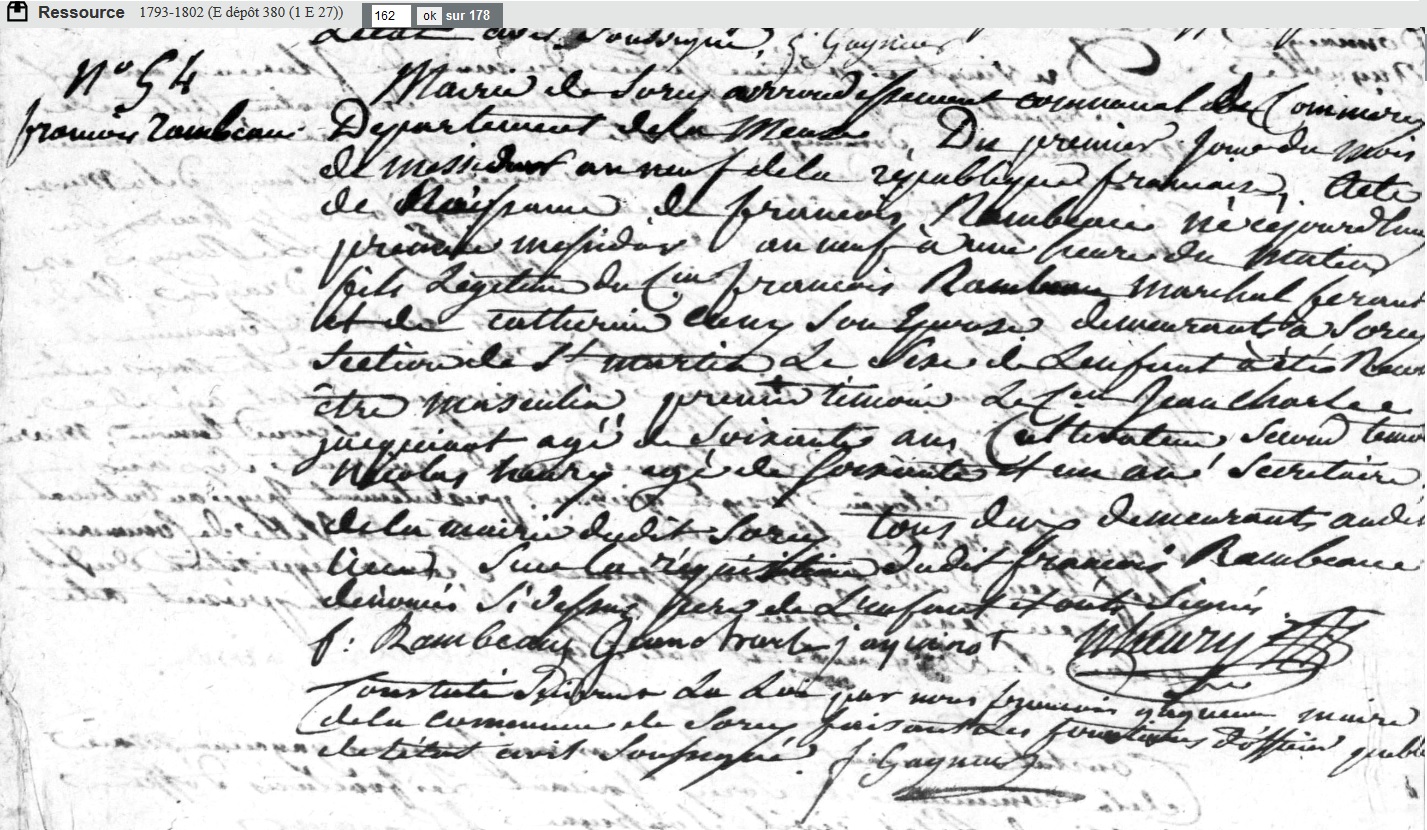 Ressource 1793-1802 (E dépôt 380 (1 E 27)) 162 ok sur 178
L'état civil soussigné, f Gayneux
N° 54
françois Rambeaux
Mairie de Sorcy arrondissement communal de Commercy
Département de la Meuse Du premier jour du mois
de messidor an neuf de la république française, Acte
de Naissance de françois Rambeaux né cejourd'hui
premier messidor an neuf à une heure du matin
fils Légitime du Cen françois Rambeaux marchal
et de Catherine son Epouse demeurants à Sorcy
Section de St martin Le Sexe de L'enfant à été
être masculin, premier témoin Le Cen Jean Charles
jacquinot agé de Soixante ans Cultivateur, Second
Nicolas henry agé de soixante et un an Secretaire
de la mairie dudit Sorcy tous deux demeurants audit
Lieux, Sur la réquisition dudit françois Rambeaux
dénomés Si dessus père de L'enfant et ont Signés
f: Rambeaux Jean Charle jaquinot NHenry
Constaté Suivant La Loi par nous françois maire
de la commune de Sorcy faisant Les fonctions d'officier
de l'état civil Soussigné f Gayneux